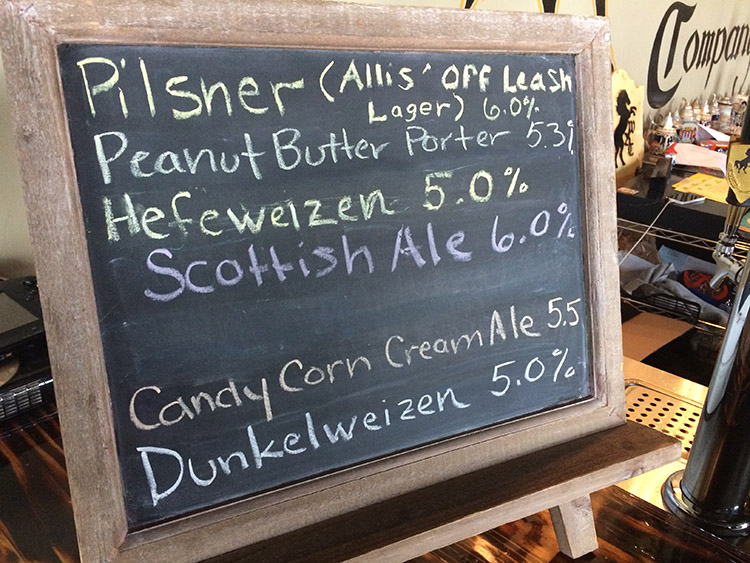 Pilsner (Allis' Off Leash
Lager) 6.0%
Peanut Butter Porter 5.3%
Hefeweizen 5.0%
Scottish Ale 6.0%
Candy Corn Cream Ale 5.5
Dunkelweizen 5.0%
Company